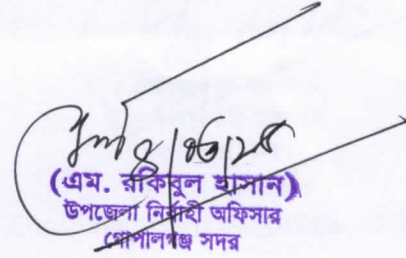 (এম. রকিবুল হাসান)
উপজেলা নির্বাহী অফিসার
গোপালগঞ্জ সদর